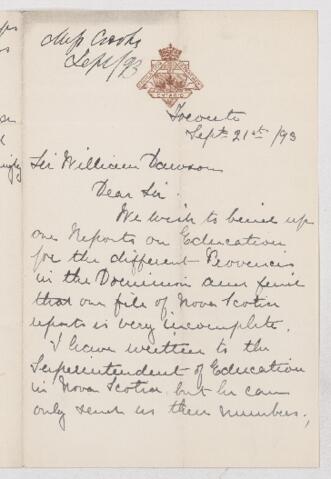 Miss Crooks
Sept/93
ONTARIO
Toronto
Sept 21st /93
Sir William Dawson
Dear Sir.
We wish to bind up
our Reports on Education
for the different Provinces
in the Dominion and find
that our file of Nova Scotia
reports is very incomplete.
I have written to the
Superintendent of Education
in Nova Scotia but he can
only send us three numbers,